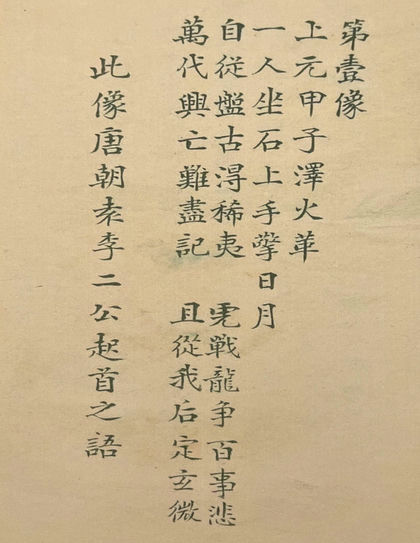 第壹像
上元甲子澤火革
一人坐石上手擎日月
自從盤古淂稀夷 虎戰龍争百事悲
萬代興亡難盡記 且從我后定玄微
此像唐朝袁李二公起首之語